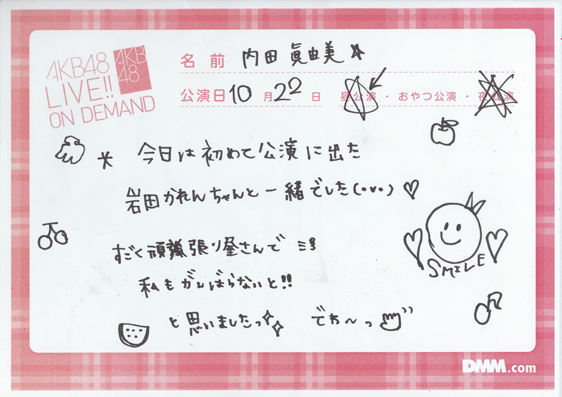 AKB48
LIVE!!
ON DEMAND
AKB
48
名前 内田眞由美
公演日 10月22日 昼公演・おやつ公演・夜公演
今日は初めて公演に出た
岩田かれんちゃんと一緒でした(○v○)♡
すごく頑張り屋さんで
私もがんばらないと!!
と思いましたっ でわ〜っ
SMILE
DMM.com